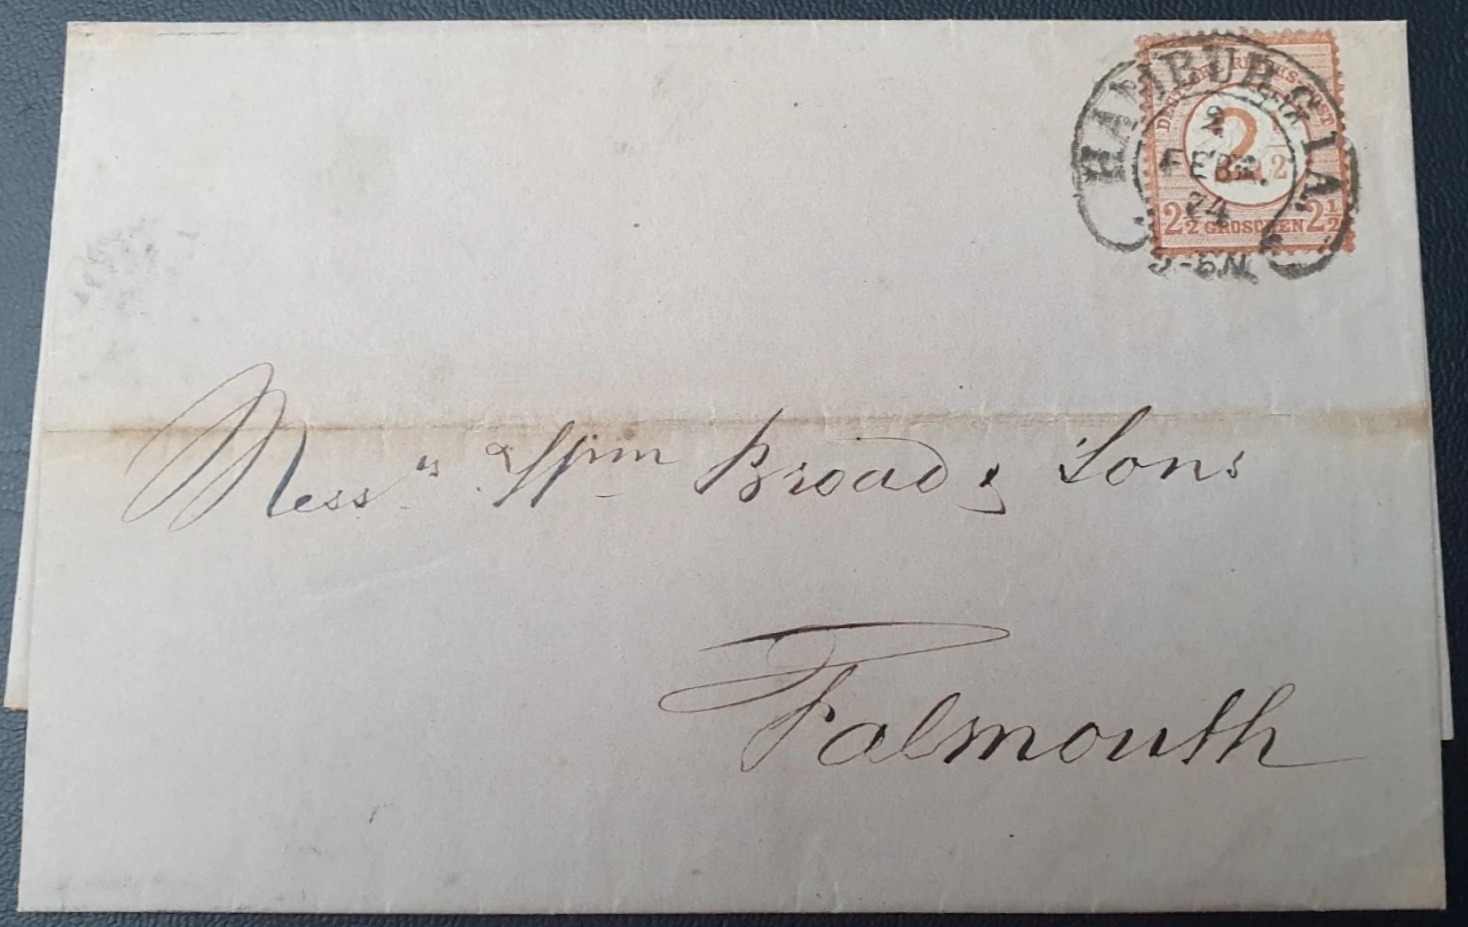 HAMBURG I.A.
2
FEBR.
74
5-6N.
DEUTSCHE REICHS-POST
2 1/2
2½ GROSCHEN 2½
Messrs Wm Broad & Sons
Falmouth